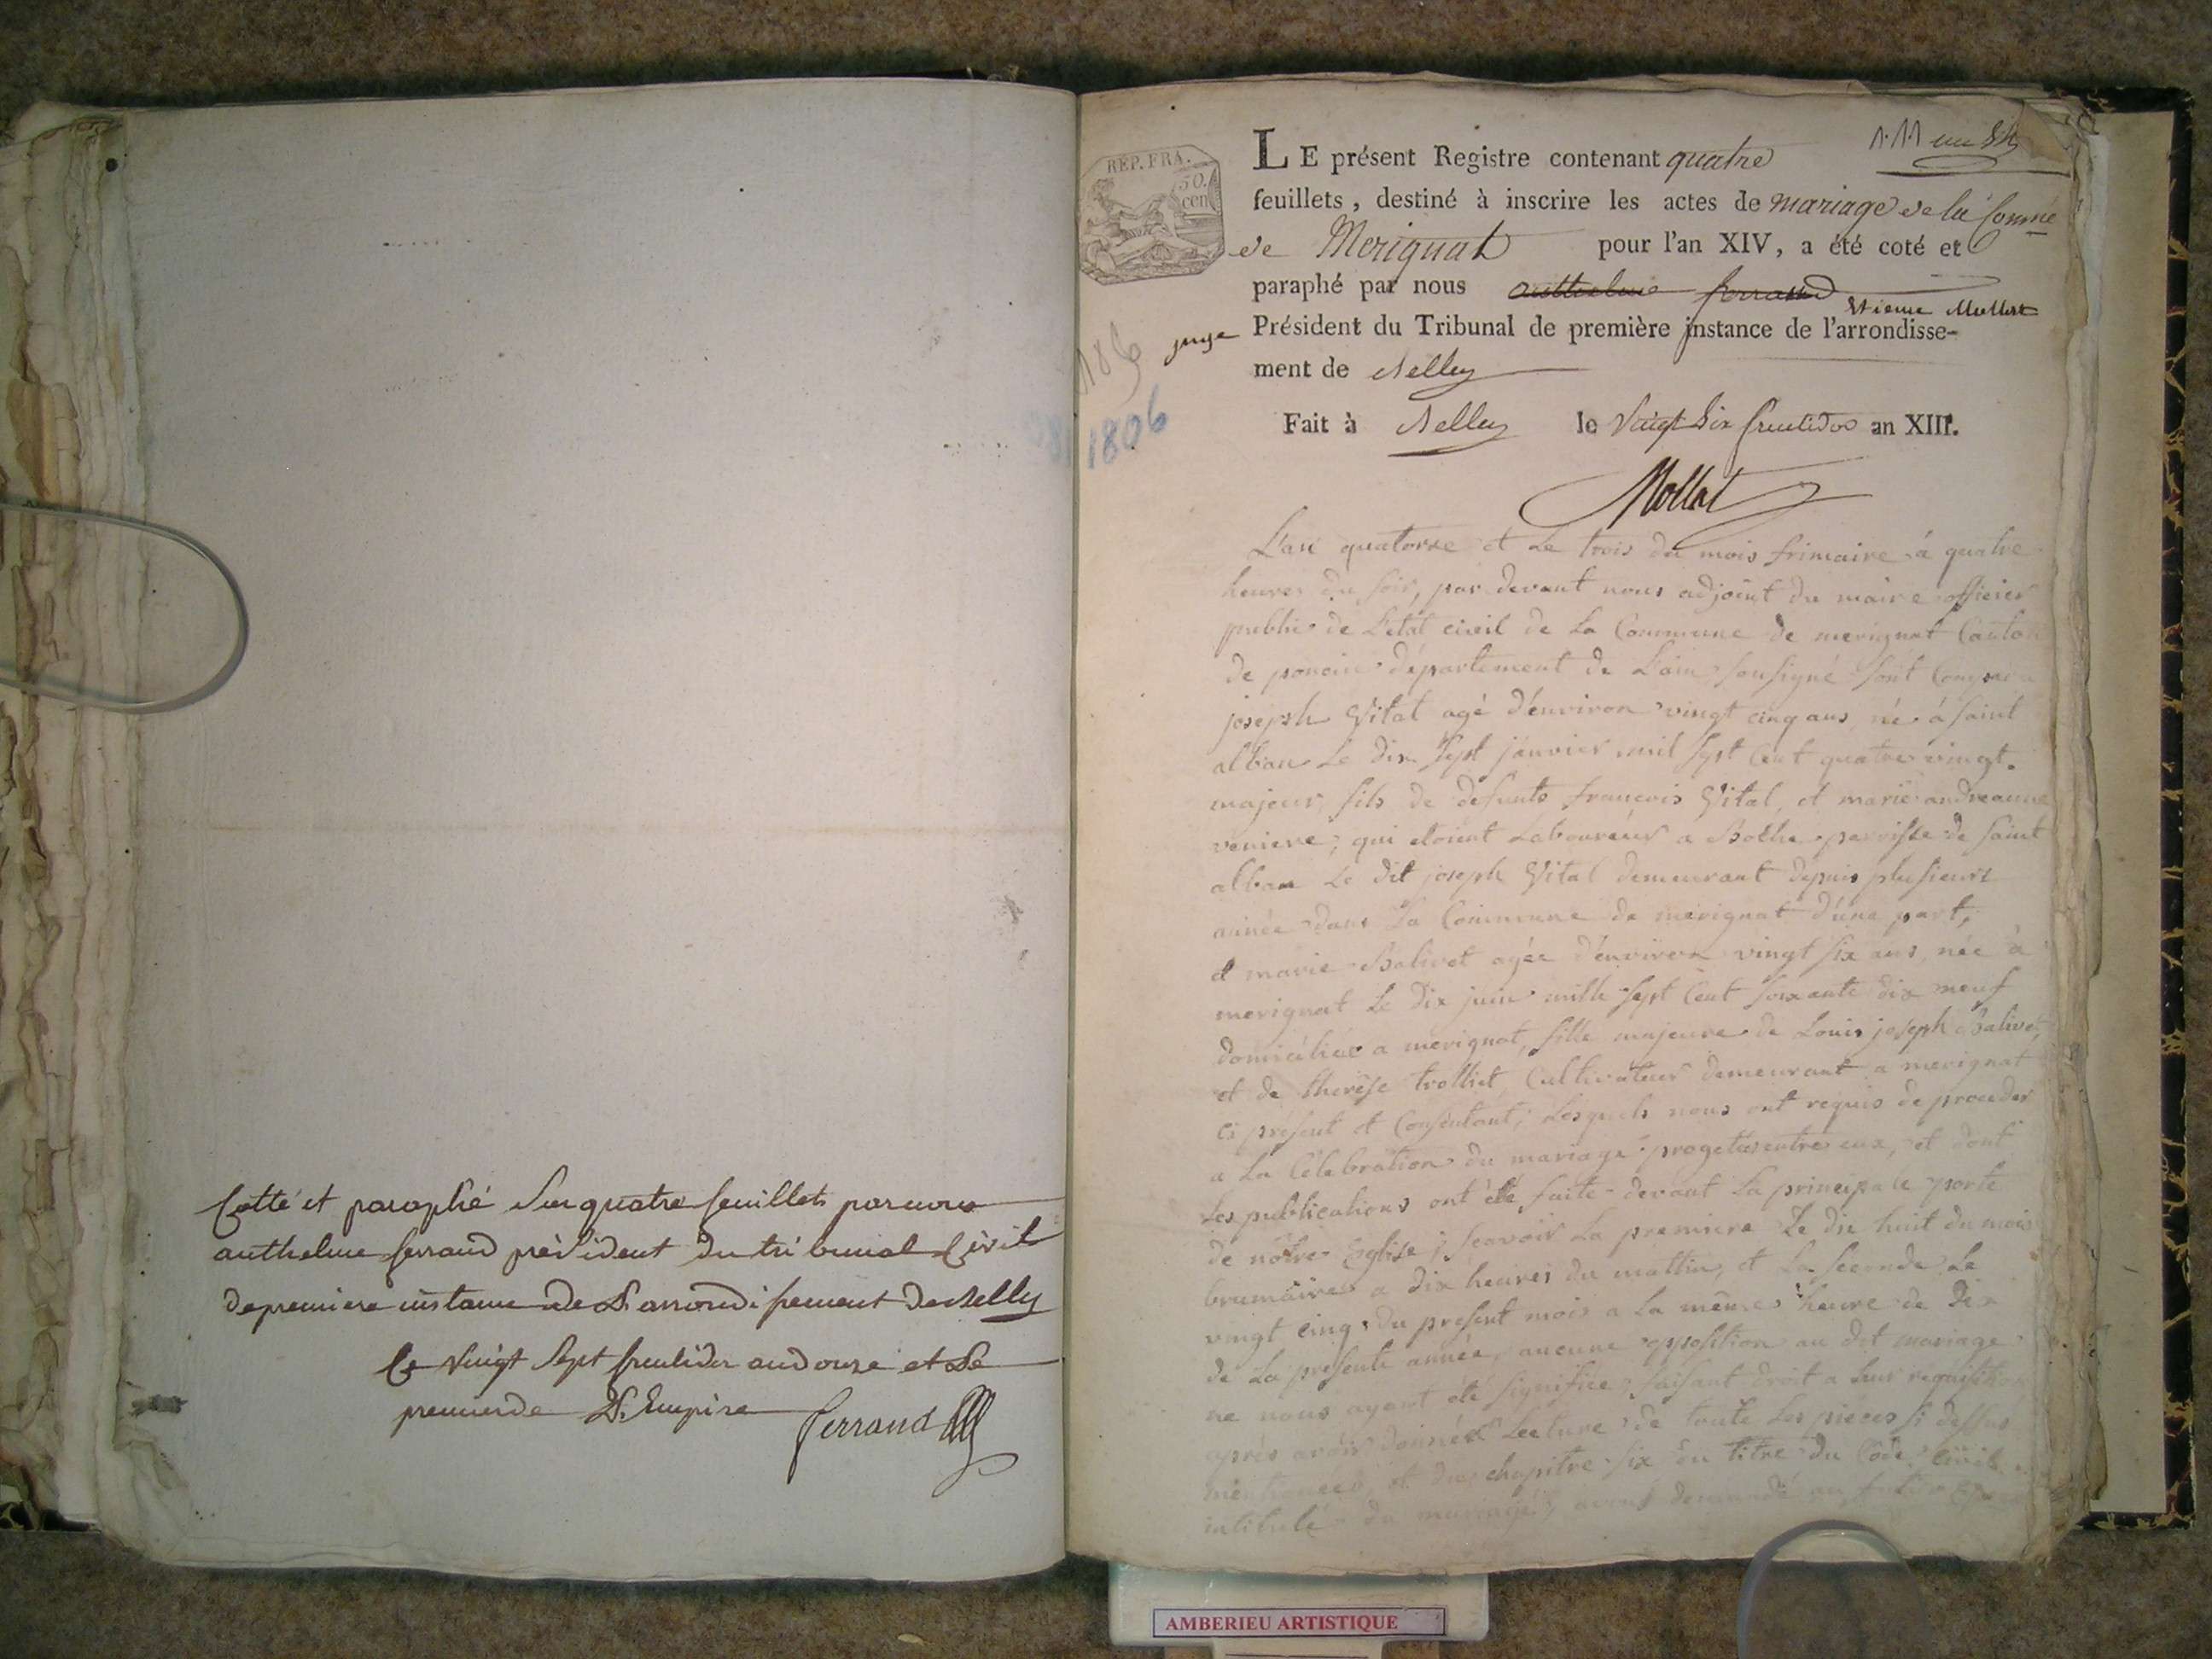 Cotté et paraphé Sur quatre feuillets par nous
anthelme ferrand président du tribunal Civil
de premiere instance de L'arrondissement de Belley
le vingt Sept fructidor an douze et Le
premier de L'Empire ferrand
REP. FRA.
50.
cen
LE présent Registre contenant quatre
feuillets, destiné à inscrire les actes de mariage de la Comne
de Merignat pour l'an XIV, a été coté et
paraphé par nous anthelme ferrand
Etienne Mollat
juge Président du Tribunal de première instance de l'arrondisse-
ment de Belley
1806
Fait à Belley le Vingt Six fructidor an XIII.
Mollat
L'an quatorze et Le trois du mois frimaire à quatre
heures du soir, par devant nous adjoint du maire officier
public de L'etat civil de La Commune de merignat Canton
de poncin département de L'ain sousigné sont
joseph Vital agé d'environ vingt cinq ans né à saint
alban Le dix sept janvier mil sept Cent quatre vingt.
majeur, fils de defunts francois Vital, et marie andreanne
veniere; qui etoient Laboureur a Bothe parroisse de saint
alban Le dit joseph Vital demeurant depuis plusieurs
année dans La Commune de merignat d'une part,
et marie Balivet agée d'environ vingt six ans, née à
merignat Le dix juin mille sept Cent soixante dix neuf
domiciliée a merignat, fille majeure de Louis joseph Balivet,
et de therèse trolliet, Cultivateur demeurant a merignat
ci présent et Consentant; Lesquels nous ont requis de proceder
a La Célebration du mariage progetté entre eux, et dont
Les publications ont été faite devant La principale porte
de nôtre Eglise; sçavoir La premiere Le dix huit du mois
brumaire a dix heures du mattin, et La seconde Le
vingt cinq du présent mois a La même heure de dix
de La presente année, aucune opposition au dit mariage
ne nous ayant été signifiée; faisant droit a leur requisition
après avoir donnée Lecture de toute Les pieces si dessus
mentionnées, et du chapitre six du titre du Code Civil
intitulé du mariage, avons demandé au futur
AMBERIEU ARTISTIQUE